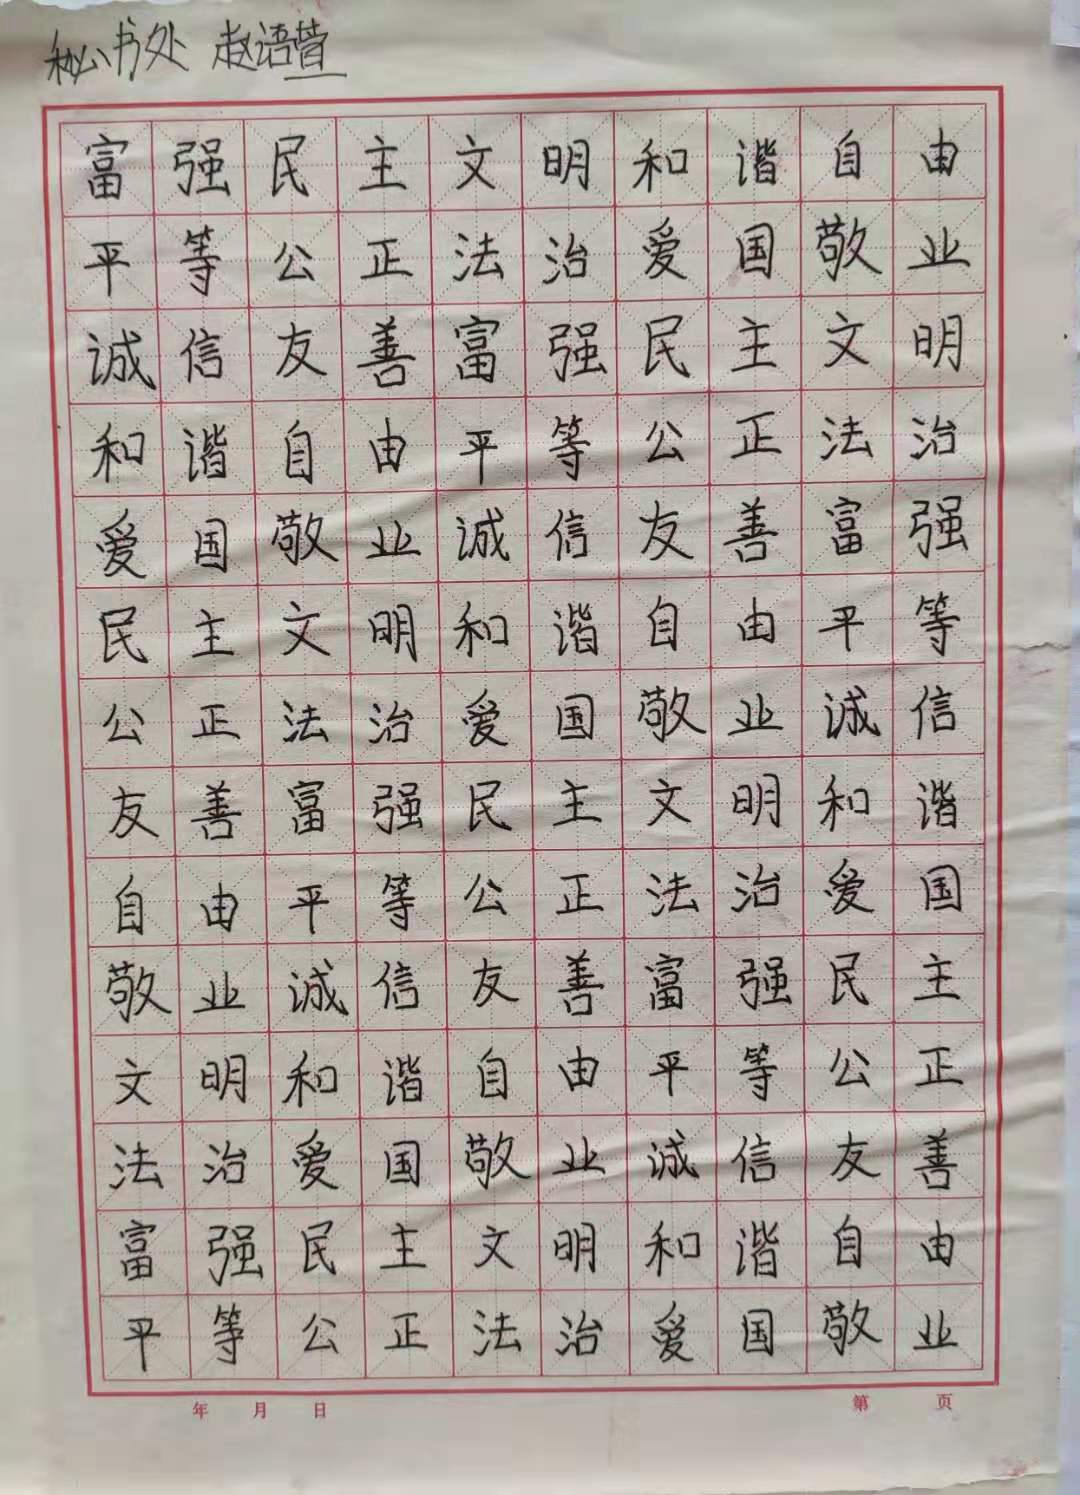 秘书处 赵语萱
富强民主文明和谐自由
平等公正法治爱国敬业
诚信友善富强民主文明
和谐自由平等公正法治
爱国敬业诚信友善富强
民主文明和谐自由平等
公正法治爱国敬业诚信
友善富强民主文明和谐
自由平等公正法治爱国
敬业诚信友善富强民主
文明和谐自由平等公正
法治爱国敬业诚信友善
富强民主文明和谐自由
平等公正法治爱国敬业
年 月 日 第 页